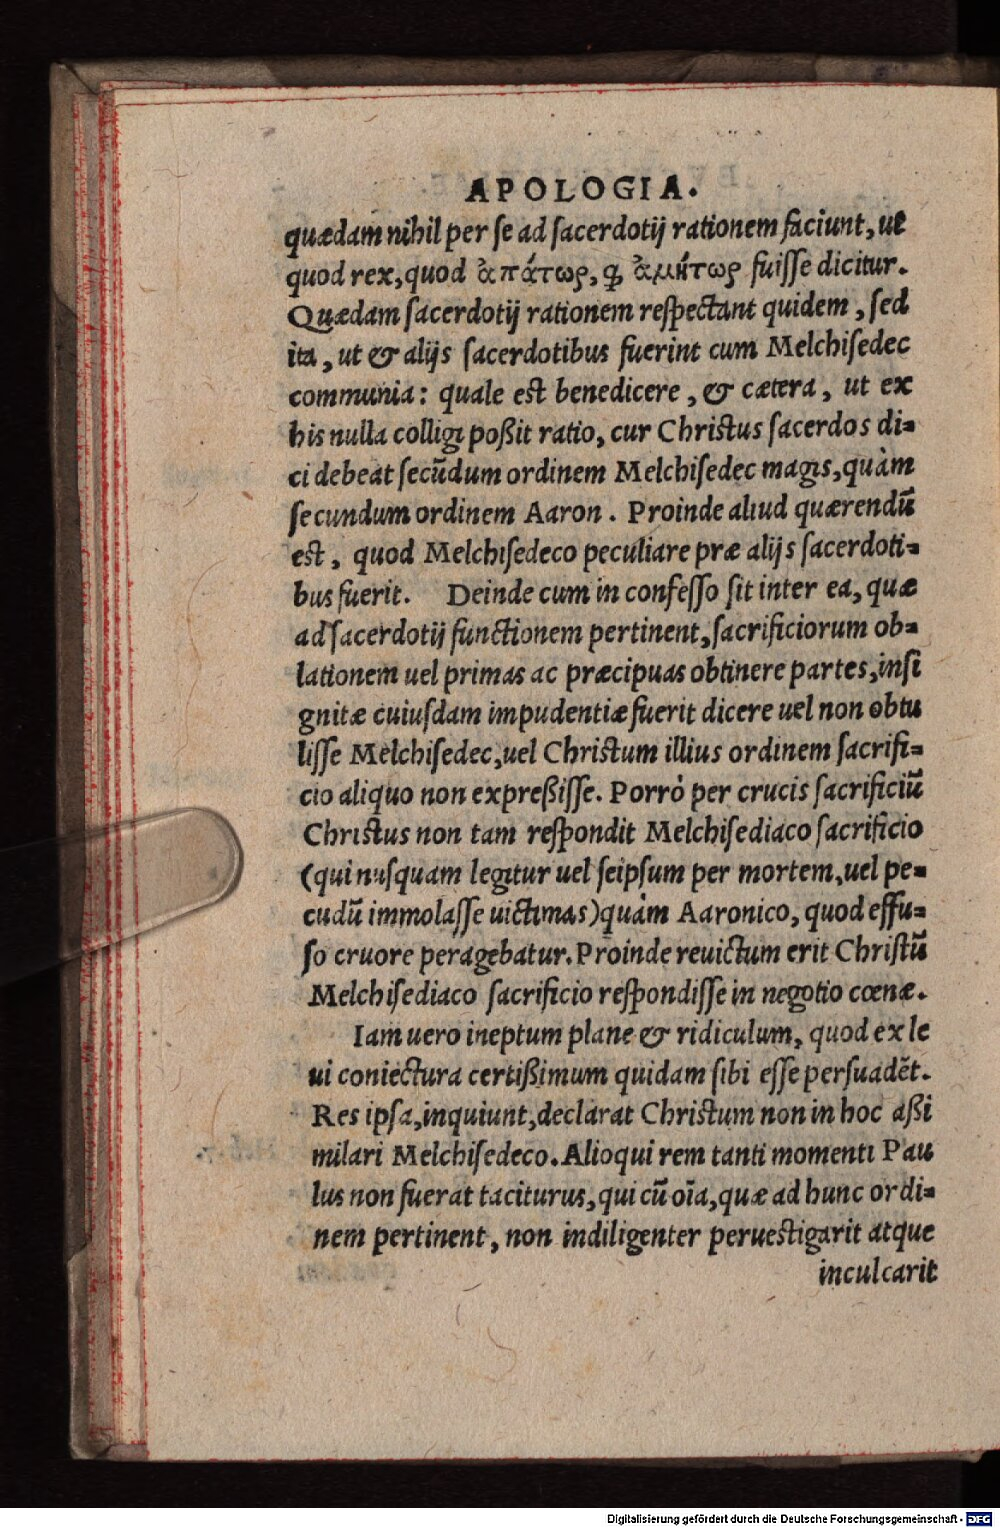 APOLOGIA.
quædam nihil per se ad sacerdotij rationem faciunt, ut
quod rex, quod ἀπάτωρ, ꝙ ἀμήτωρ fuisse dicitur.
Quædam sacerdotij rationem respectant quidem, sed
ita, ut & alijs sacerdotibus fuerint cum Melchisedec
communia: quale est benedicere, & cætera, ut ex
his nulla colligi poßit ratio, cur Christus sacerdos di=
ci debeat secūdum ordinem Melchisedec magis, quàm
secundum ordinem Aaron. Proinde aliud quærendū
est, quod Melchisedeco peculiare præ alijs sacerdoti=
bus fuerit. Deinde cum in confesso sit inter ea, quæ
ad sacerdotij functionem pertinent, sacrificiorum ob=
lationem uel primas ac præcipuas obtinere partes, insi
gnitæ cuiusdam impudentiæ fuerit dicere uel non obtu
lisse Melchisedec, uel Christum illius ordinem sacrifi=
cio aliquo non expreßisse. Porrò per crucis sacrificiū
Christus non tam respondit Melchisediaco sacrificio
(qui nusquam legitur uel seipsum per mortem, uel pe=
cudū immolasse uictimas) quàm Aaronico, quod effu=
so cruore peragebatur. Proinde reuictum erit Christū
Melchisediaco sacrificio respondisse in negotio cœnæ.
Iam uero ineptum plane & ridiculum, quod ex le
ui coniectura certißimum quidam sibi esse persuadēt.
Res ipsa, inquiunt, declarat Christum non in hoc aßi
milari Melchisedeco. Alioqui rem tanti momenti Pau
lus non fuerat taciturus, qui cū oīa, quæ ad hunc ordi=
nem pertinent, non indiligenter peruestigarit atque
inculcarit
Digitalisierung gefördert durch die Deutsche Forschungsgemeinschaft - DFG